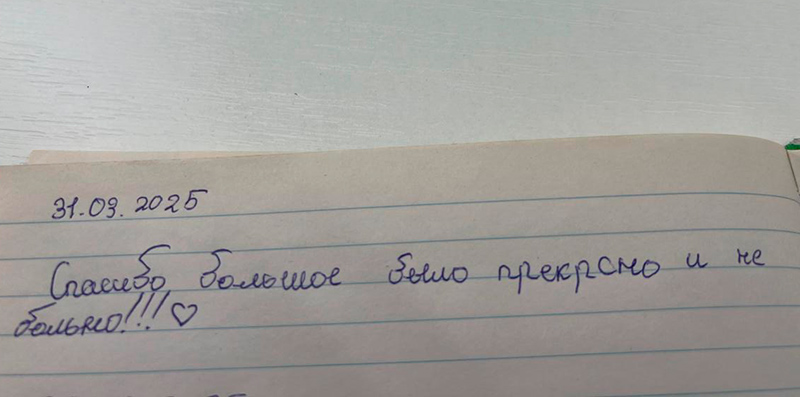 31.03.2025
Спасибо большое было прекрсно и не
больно!!!♡